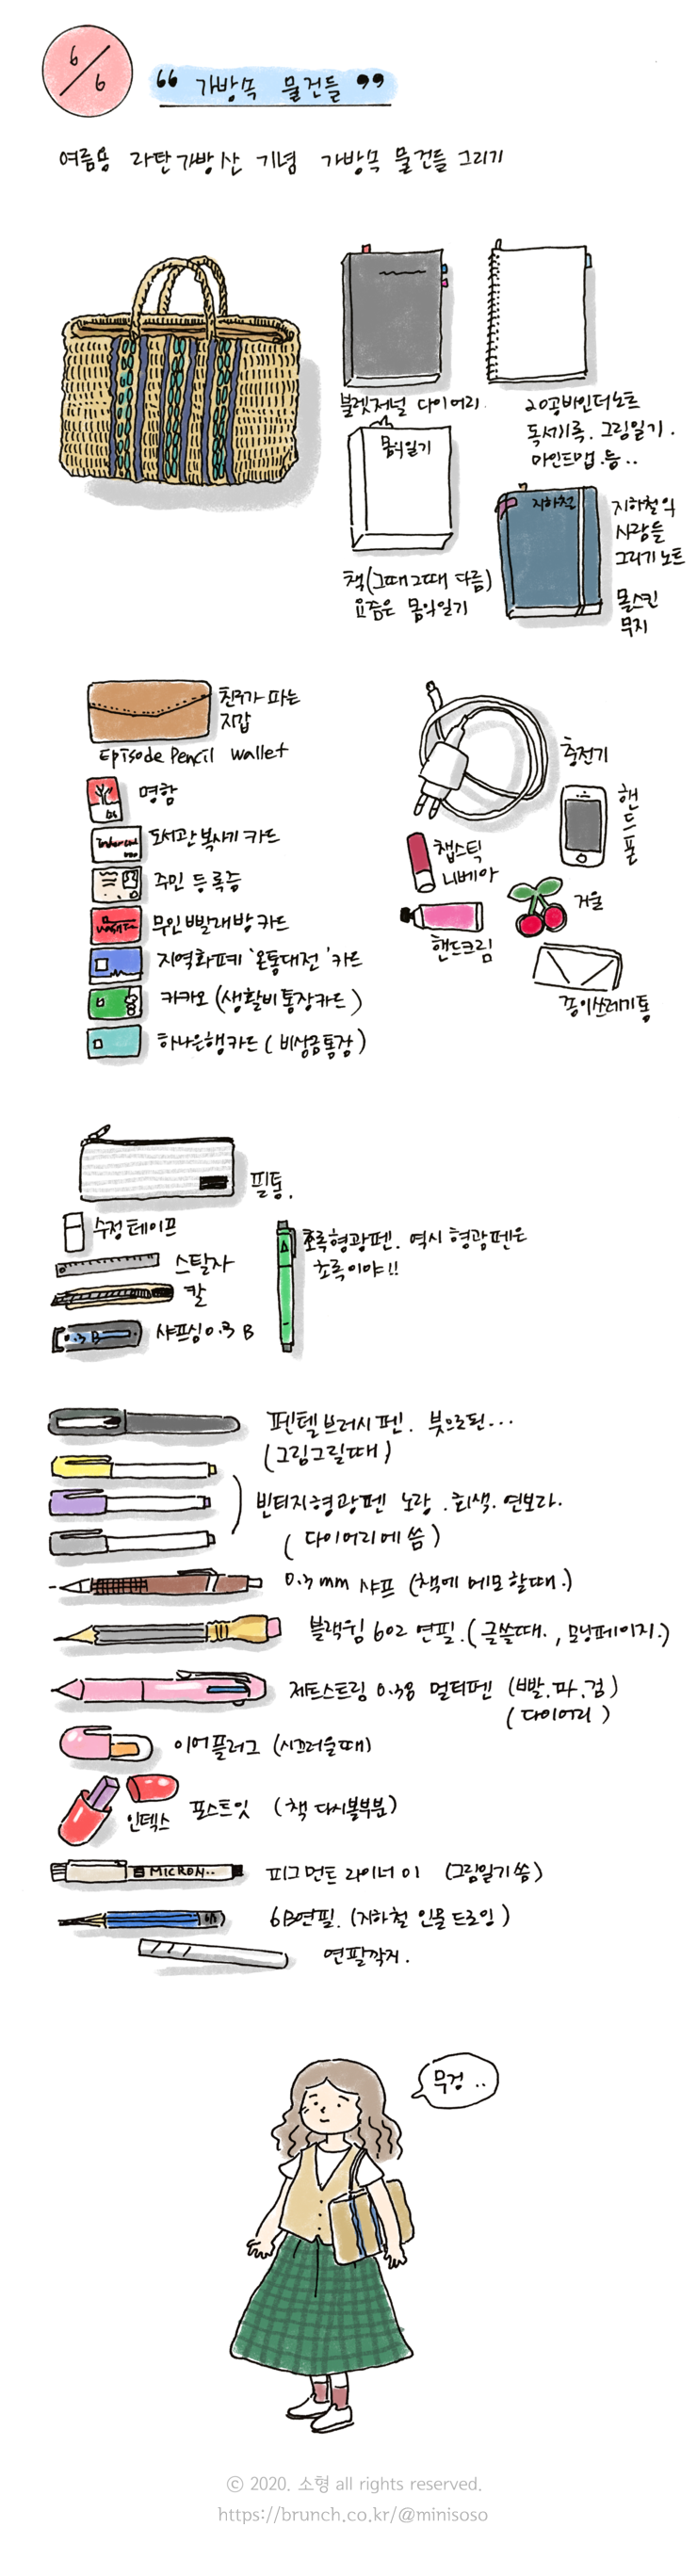 6/6
“ 가방속 물건들 ”
여름용 라탄가방 산 기념 가방속 물건들 그리기
불렛저널 다이어리.
20공바인더노트
독서기록. 그림일기.
마인드맵.등..
몸의일기
책(그때그때 다름)
요즘은 몸의일기
지하철
지하철의
사람들
그리기노트
몰스킨
무지
친구가 파는
지갑
Episode Pencil Wallet
명함
도서관복사기 카드
주민등록증
무인빨래방카드
지역화폐 '온통대전' 카드
카카오 (생활비통장카드)
하나은행카드 (비상금통장)
충전기
핸드폰
챕스틱
니베아
핸드크림
거울
종이쓰레기통
필통.
수정테이프
스틸자
칼
샤프심0.3 B
초록형광펜. 역시 형광펜은
초록이야!!
펜텔브러시펜. 붓으로된...
(그림그릴때)
빈티지형광펜 노랑. 회색. 연보라.
(다이어리에 씀)
0.3mm 샤프 (책에 메모할때.)
블랙윙 602 연필.(글쓸때., 모닝페이지.)
제트스트림 0.38 멀티펜 (빨.파.검)
(다이어리)
이어플러그 (시끄러울때)
인덱스 포스트잇 (책 다시볼부분)
MICRON..
피그먼트 라이너 01 (그림일기 씀)
6B연필. (지하철 인물 드로잉)
연필깍지.
무겅 ..
© 2020. 소형 all rights reserved.
https://brunch.co.kr/@minisoso